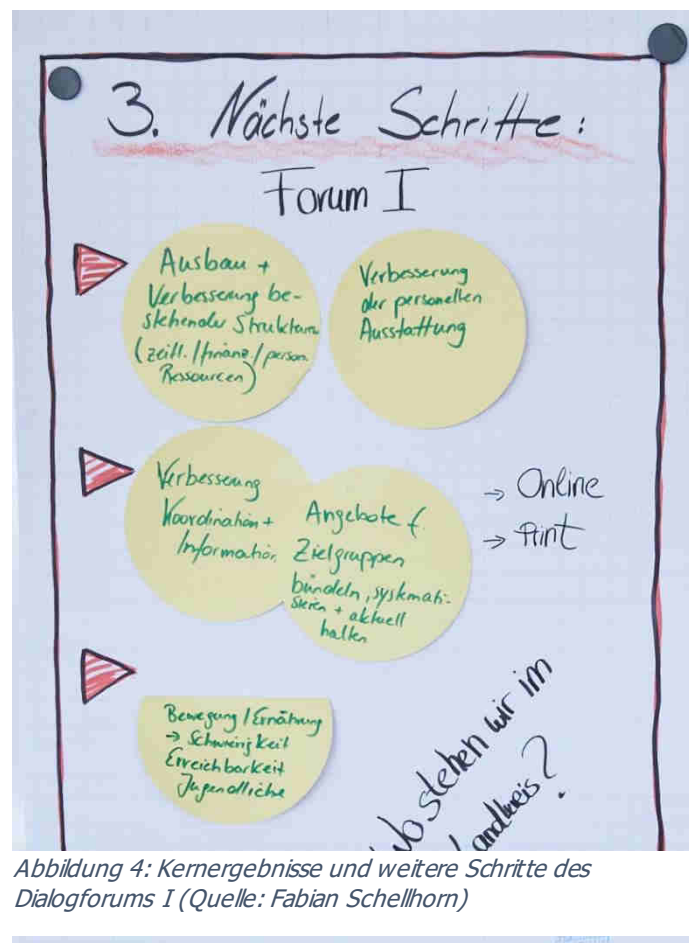 3. Nächste Schritte:
Forum I
Ausbau +
Verbesserung be-
stehender Strukturen
(zeitl./finanz./person.
Ressourcen)
Verbesserung
der personellen
Ausstattung
Verbesserung
Koordination +
Information
Angebote f.
Zielgruppen
bündeln, systemati-
sieren + aktuell
halten
→ Online
→ Print
Bewegung / Ernährung
→ Schwierigkeit
Erreichbarkeit
Jugendliche
Wo stehen wir im
Landkreis?
Abbildung 4: Kernergebnisse und weitere Schritte des
Dialogforums I (Quelle: Fabian Schellhorn)